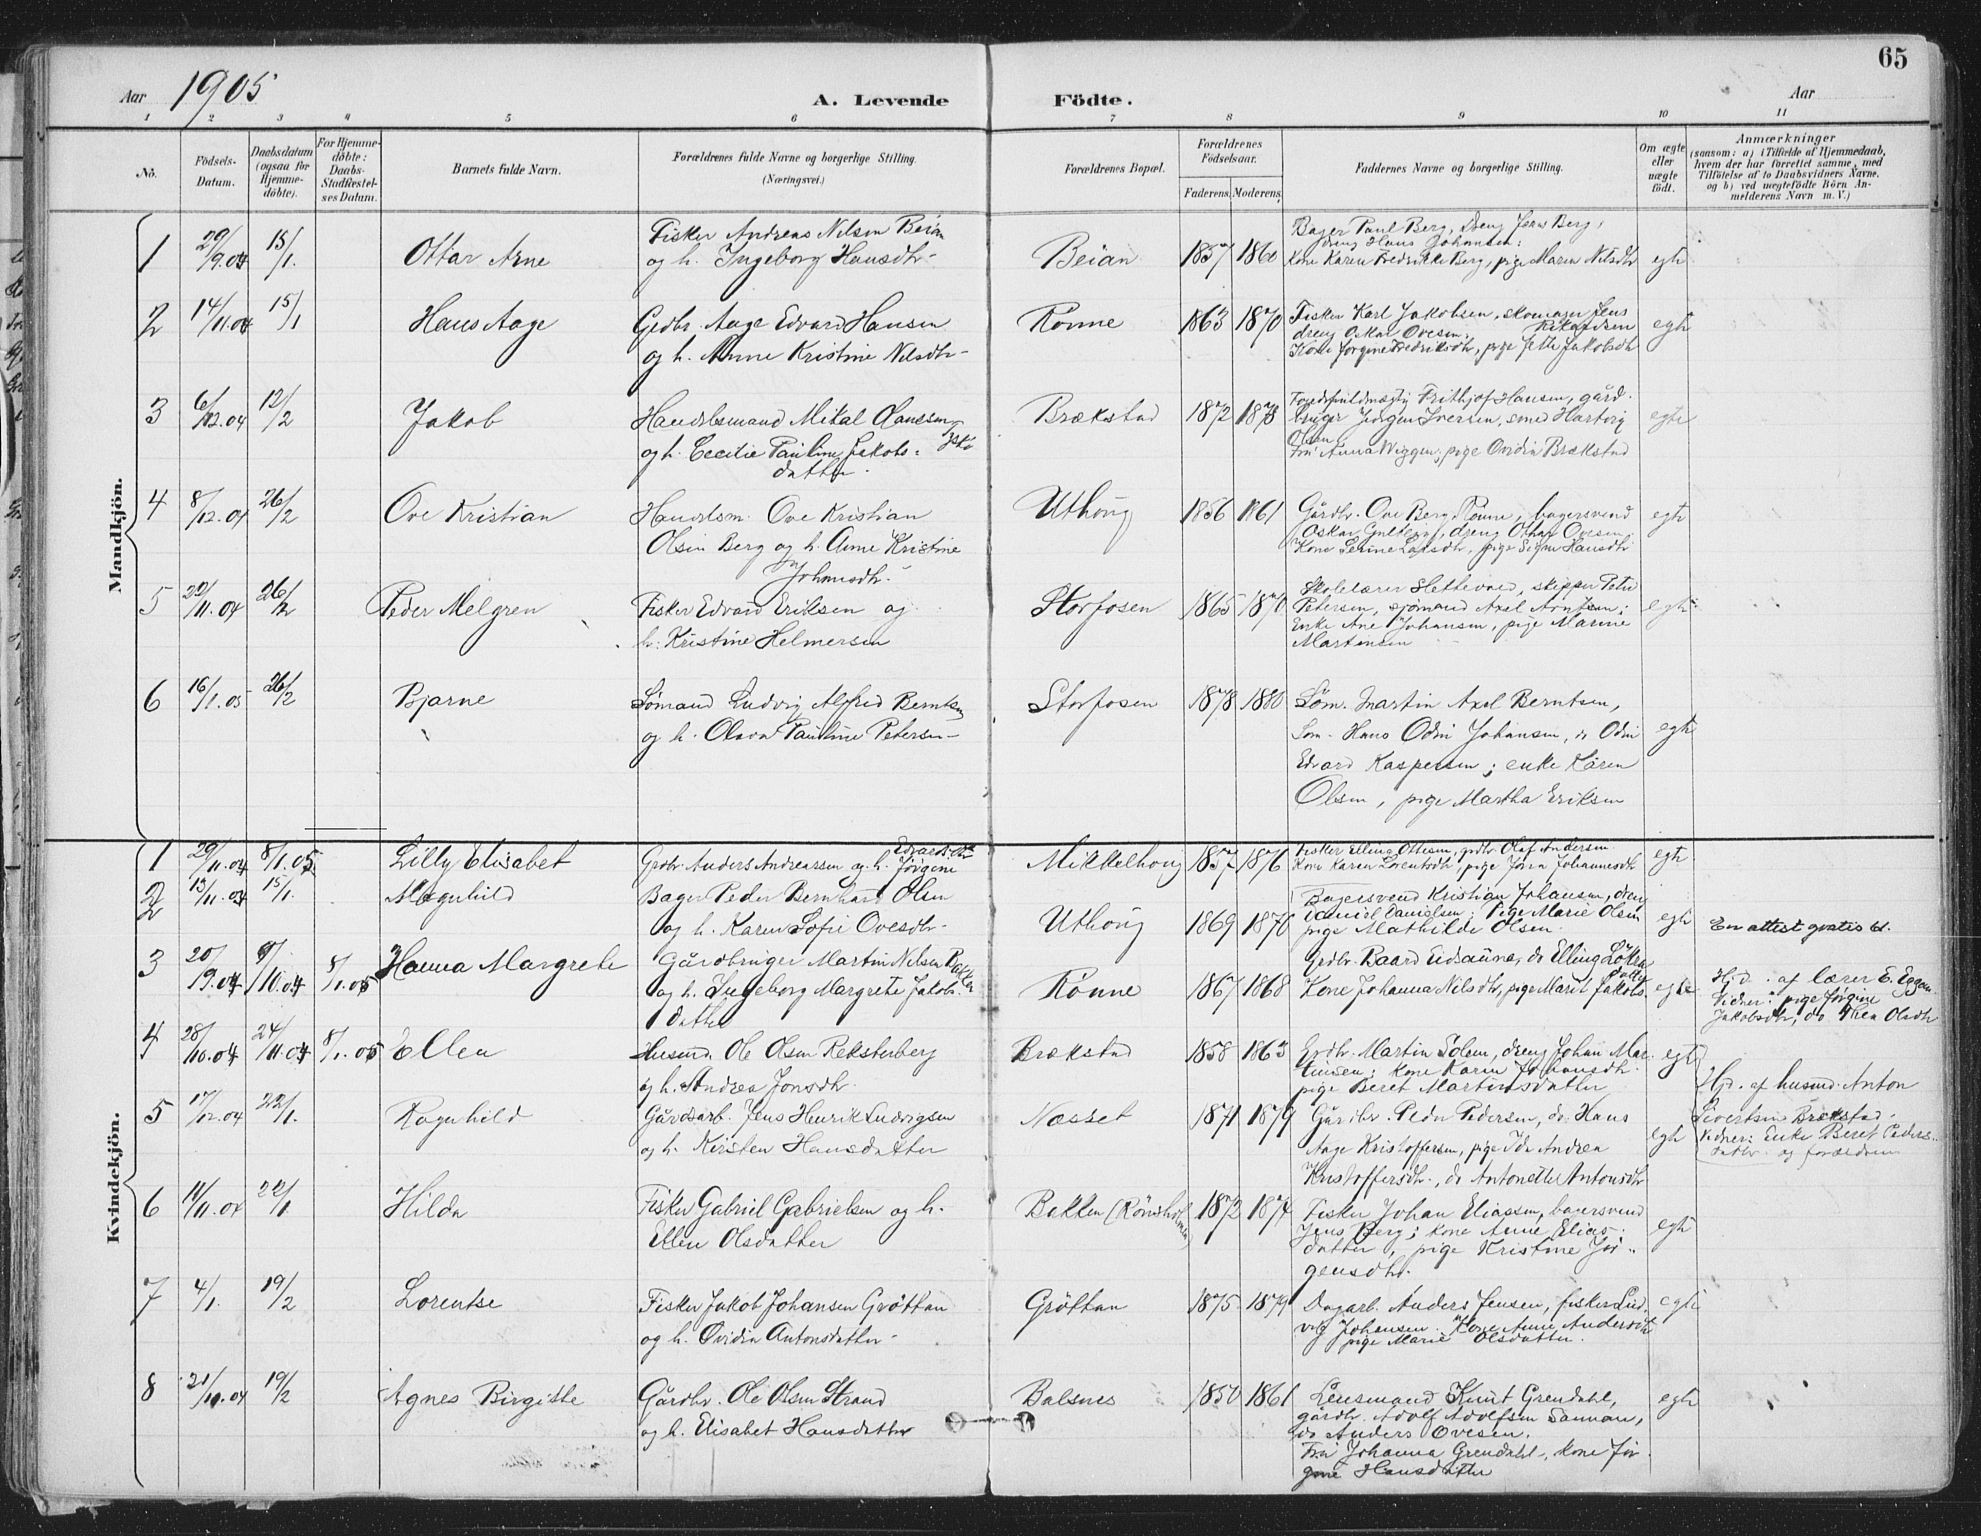 65
Aar 1905
A. Levende Födte.
Aar
1 2 3 4 5 6 7 8 9 10 11
No.
Födsels-Datum.
Daabsdatum (ogsaa for Hjemme-döbte).
For Hjemme-döbte: Daabs-Stadfæstel-ses Datum.
Barnets fulde Navn.
Forældrenes fulde Navne og borgerlige Stilling. (Næringsvei.)
Forældrenes Bopæl.
Forældrenes Födselsaar.
Faderens. Moderens.
Faddernes Navne og borgerlige Stilling.
Om ægte eller uægte födt.
Anmærkninger
(saasom: a) i Tilfælde af Hjemmedaab,
hvem der har forrettet samme, med
Tilföielse af to Daabsvidners Navne,
og b) ved uægtefödte Börn An-
melderens Navn m. V.)
Mandkjön.
1 29/9.04 15/1. Ottar Arne
Fisker Andreas Nilsen Beian
og h. Ingeborg Hansdtr-
Beian 1857 1860
Bager Paul Berg, dreng Jens Berg,
dreng Hans Johansen;
Kone Karen Fredrikke Berg, pige Maren Nilsdtr
egte
2 14/11.04 15/1 Hans Aage
Gedbr. Aage Edvard Hansen
og h. Anne Kristine Nilsdtr-
Rönne 1863 1870
Fisker Karl Jakobsen, skomager Jens
dreng Oskar Ovesen,
Kone Jörgine Fredriksdtr, pige Jette Jakobsdtr
egte
3 6/12.04 12/2 Jakob
Handelsmand Mikal Claussen
og h. Cecilie Pauline Jakobs-
datter.
Brækstad 1872 1873
Fogedfuldmægtig Frithjof Hansen, gård-
bruger Jörgen Iversen, smed Hartvig
Olsen
Fru Anna Wiggen, pige Ovidia Brækstad
egte
4 8/12.04 26/2 Ove Kristian
Handelsm. Ove Kristian
Olsen Berg og h. Anne Kristine
Johansdtr.
Uthoug 1856 1861
Gårdbr. Ove Berg, Rönne, bagersvend
Oskar, dreng Othar Ovesen,
Kone Serine Larsdtr, pige Signe Hansdtr
egte
5 22/11.04 26/2 Peder Melgren
Fisker Edvard Eriksen og
h. Kristine Helmersen
Storfosen 1865 1870
Skolelærer Slettevold, skipper Peter
Petersen, sjömand Axel Arntsen;
Enke Ane Johansen, pige Marine
Martinsen
egte
6 16/1.05 26/2 Bjarne
Sömand Ludvig Alfred Berntsen
og h. Olava Pauline Petersen-
Storfosen 1878 1880
Söm. Martin Axel Berntsen,
Söm. Hans Odin Johansen, do Odin
Edvard Kaspersen; enke Karen
Olsen, pige Martha Eriksen
egte
Kvindekjön.
1 29/11.04 8/1.05 Lilly Elisabet
Grdbr. Anders Andreassen og h. Jörgine
Edvardsdtr
Mikkelhoug 1857 1876
Fisker Elling Ottesen, grdbr. Olaf Andersen
Kone Karen Lorentsdtr, pige Jörn Johannesdtr
egte
2 13/11.04 15/1. Magnhild
Bager Peder Bernhard Olsen
og h. Karen Sofie Ovesdtr-
Uthoug 1869 1870
Bagersvend Kristian Johansen, dreng
Daniel Danielsen; Pige Marie Olsen
pige Mathilde Olsen.
egte
En attest gratis
3 20/9.04 9/10.04 8/1.05 Hanna Margrete
Gårdbruger Martin Nilsen Bakken
og h. Ingeborg Margrete Jakobs-
datter
Rönne 1867 1868
Gedbr. Baard Eidsaune, do Elling Löken
Kone Johanna Nilsdtr, pige Marit Jakobs-
datter
egte
Hjd. af lærer E. Eggan
Vidner: pige Jörgine
Jakobsdtr, do Thea Olsdtr
4 28/10.04 24/11.04 8/1.05 Ellen
Husmd. Ole Olsen Reksterberg
og h. Andrea Jonsdtr.
Brækstad 1858 1863
Grdbr. Martin Solem, dreng Johan Mar-
tinsen; Kone Karen Johansdtr.
pige Beret Martinsdatter
egte
Hjd. af husmd. Anton
Sivertsen Brækstad.
Vidner: Enke Beret Peders-
datter og forældrene
5 17/12.04 22/1. Ragnhild
Gårdsarb. Jens Henrik Ludvigsen
og h. Kirsten Hansdatter
Næsset 1871 1879
Gårdbr. Peder Pedersen, do. Hans
Aage Kristoffersen, pige Ida Andrea
Kristoffersdtr., do Antonette Antonsdtr
egte
6 11/11.04 22/1 Hilda
Fisker Gabriel Gabrielsen og h.
Ellen Olsdatter
Bakken (Römsholmen) 1872 1874
Fisker Johan Eliassen, bagersvend
Jens Berg; kone Anne Elias-
datter, pige Kristine Jör-
gensdtr.
egte
7 4/1. 19/2 Lorentse
Fisker Jakob Johansen Gröttan
og h. Ovidia Antonsdatter-
Gröttan 1875 1879
Dagarb. Anders Jensen, fisker Lud-
vig Johansen. Kone Anne Andersdtr
pige Marie Olsdatter.
egte
8 21/10.04 19/2 Agnes Birgitte
Gårdbr. Ole Olsen Strand
og h. Elisabet Hansdatter
Balsnes 1850 1861
Lensmand Knut Grendahl,
gårdbr. Adolf Adolfsen Sannan,
do Anders Ovesen.
Fru Johanna Grendahl, kone Jör-
gine Hansdatter
egte